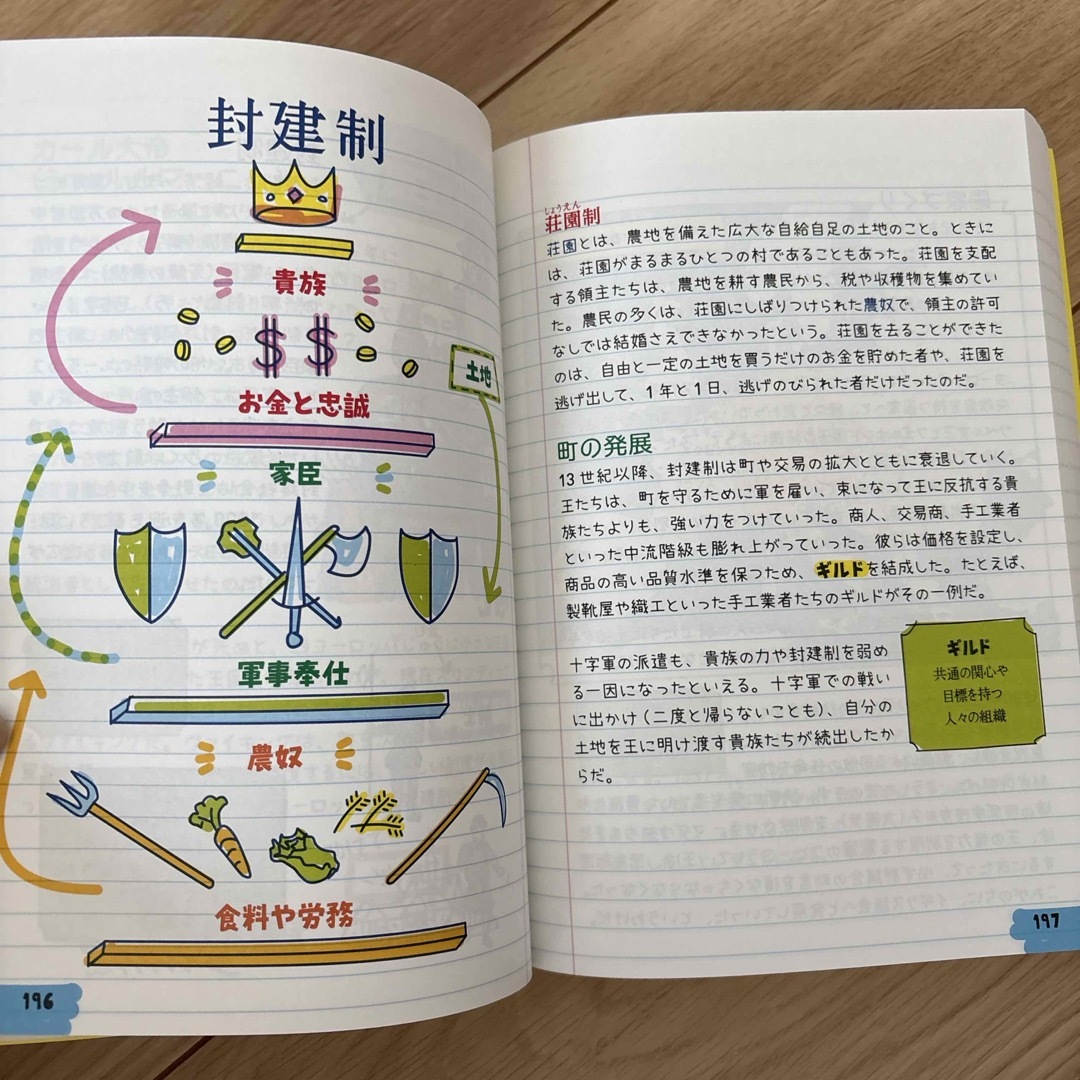 封建制
貴族
お金と忠誠
土地
家臣
軍事奉仕
農奴
食料や労務
196
しょうえん
荘園制
荘園とは、農地を備えた広大な自給自足の土地のこと。ときに
は、荘園がまるまるひとつの村であることもあった。荘園を支配
する領主たちは、農地を耕す農民から、税や収穫物を集めてい
た。農民の多くは、荘園にしばりつけられた農奴で、領主の許可
なしでは結婚さえできなかったという。荘園を去ることができた
のは、自由と一定の土地を買うだけのお金を貯めた者や、荘園を
逃げ出して、1年と1日、逃げのびられた者だけだったのだ。
町の発展
13世紀以降、封建制は町や交易の拡大とともに衰退していく。
王たちは、町を守るために軍を雇い、束になって王に反抗する貴
族たちよりも、強い力をつけていった。商人、交易商、手工業者
といった中流階級も膨れ上がっていった。彼らは価格を設定し、
商品の高い品質水準を保つため、ギルドを結成した。たとえば、
製靴屋や織工といった手工業者たちのギルドがその一例だ。
十字軍の派遣も、貴族の力や封建制を弱め
る一因になったといえる。十字軍での戦い
に出かけ(二度と帰らないことも)、自分の
土地を王に明け渡す貴族たちが続出したか
らだ。
ギルド
共通の関心や
目標を持つ
人々の組織
197